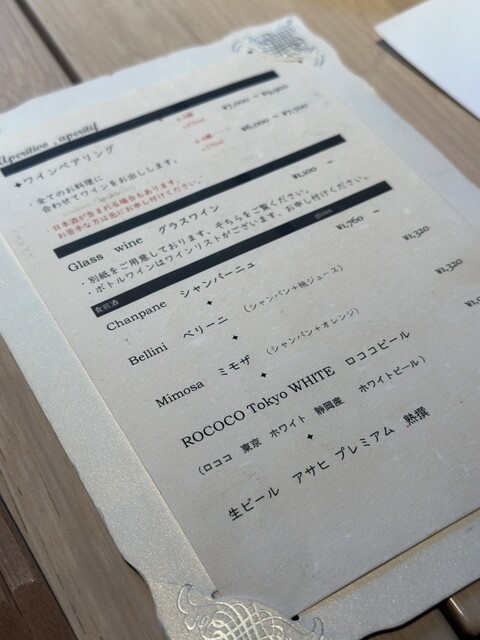 aperitivo , aperitif
✦ワインペアリング
¥7,000 ~ ¥9,900
¥6,000 ~ ¥7,700
・全てのお料理に
合わせてワインをお出しします。
・日本酒が含まれる場合もあります。
お苦手な方は先にお申し付けください。
Glass wine グラスワイン ¥1,100 ~
・別紙をご用意しております。そちらをご覧ください。
・ボトルワインはワインリストがございます。お申し付けください。
食前酒 glass
Chanpane シャンパーニュ ¥1,760 ~
✦
Bellini ベリーニ (シャンパン+桃ジュース) ¥1,320
✦
Mimosa ミモザ (シャンパン+オレンジ) ¥1,320
✦
ROCOCO Tokyo WHITE ロココビール
(ロココ 東京 ホワイト 静岡産 ホワイトビール)
✦
生ビール アサヒ プレミアム 熟撰